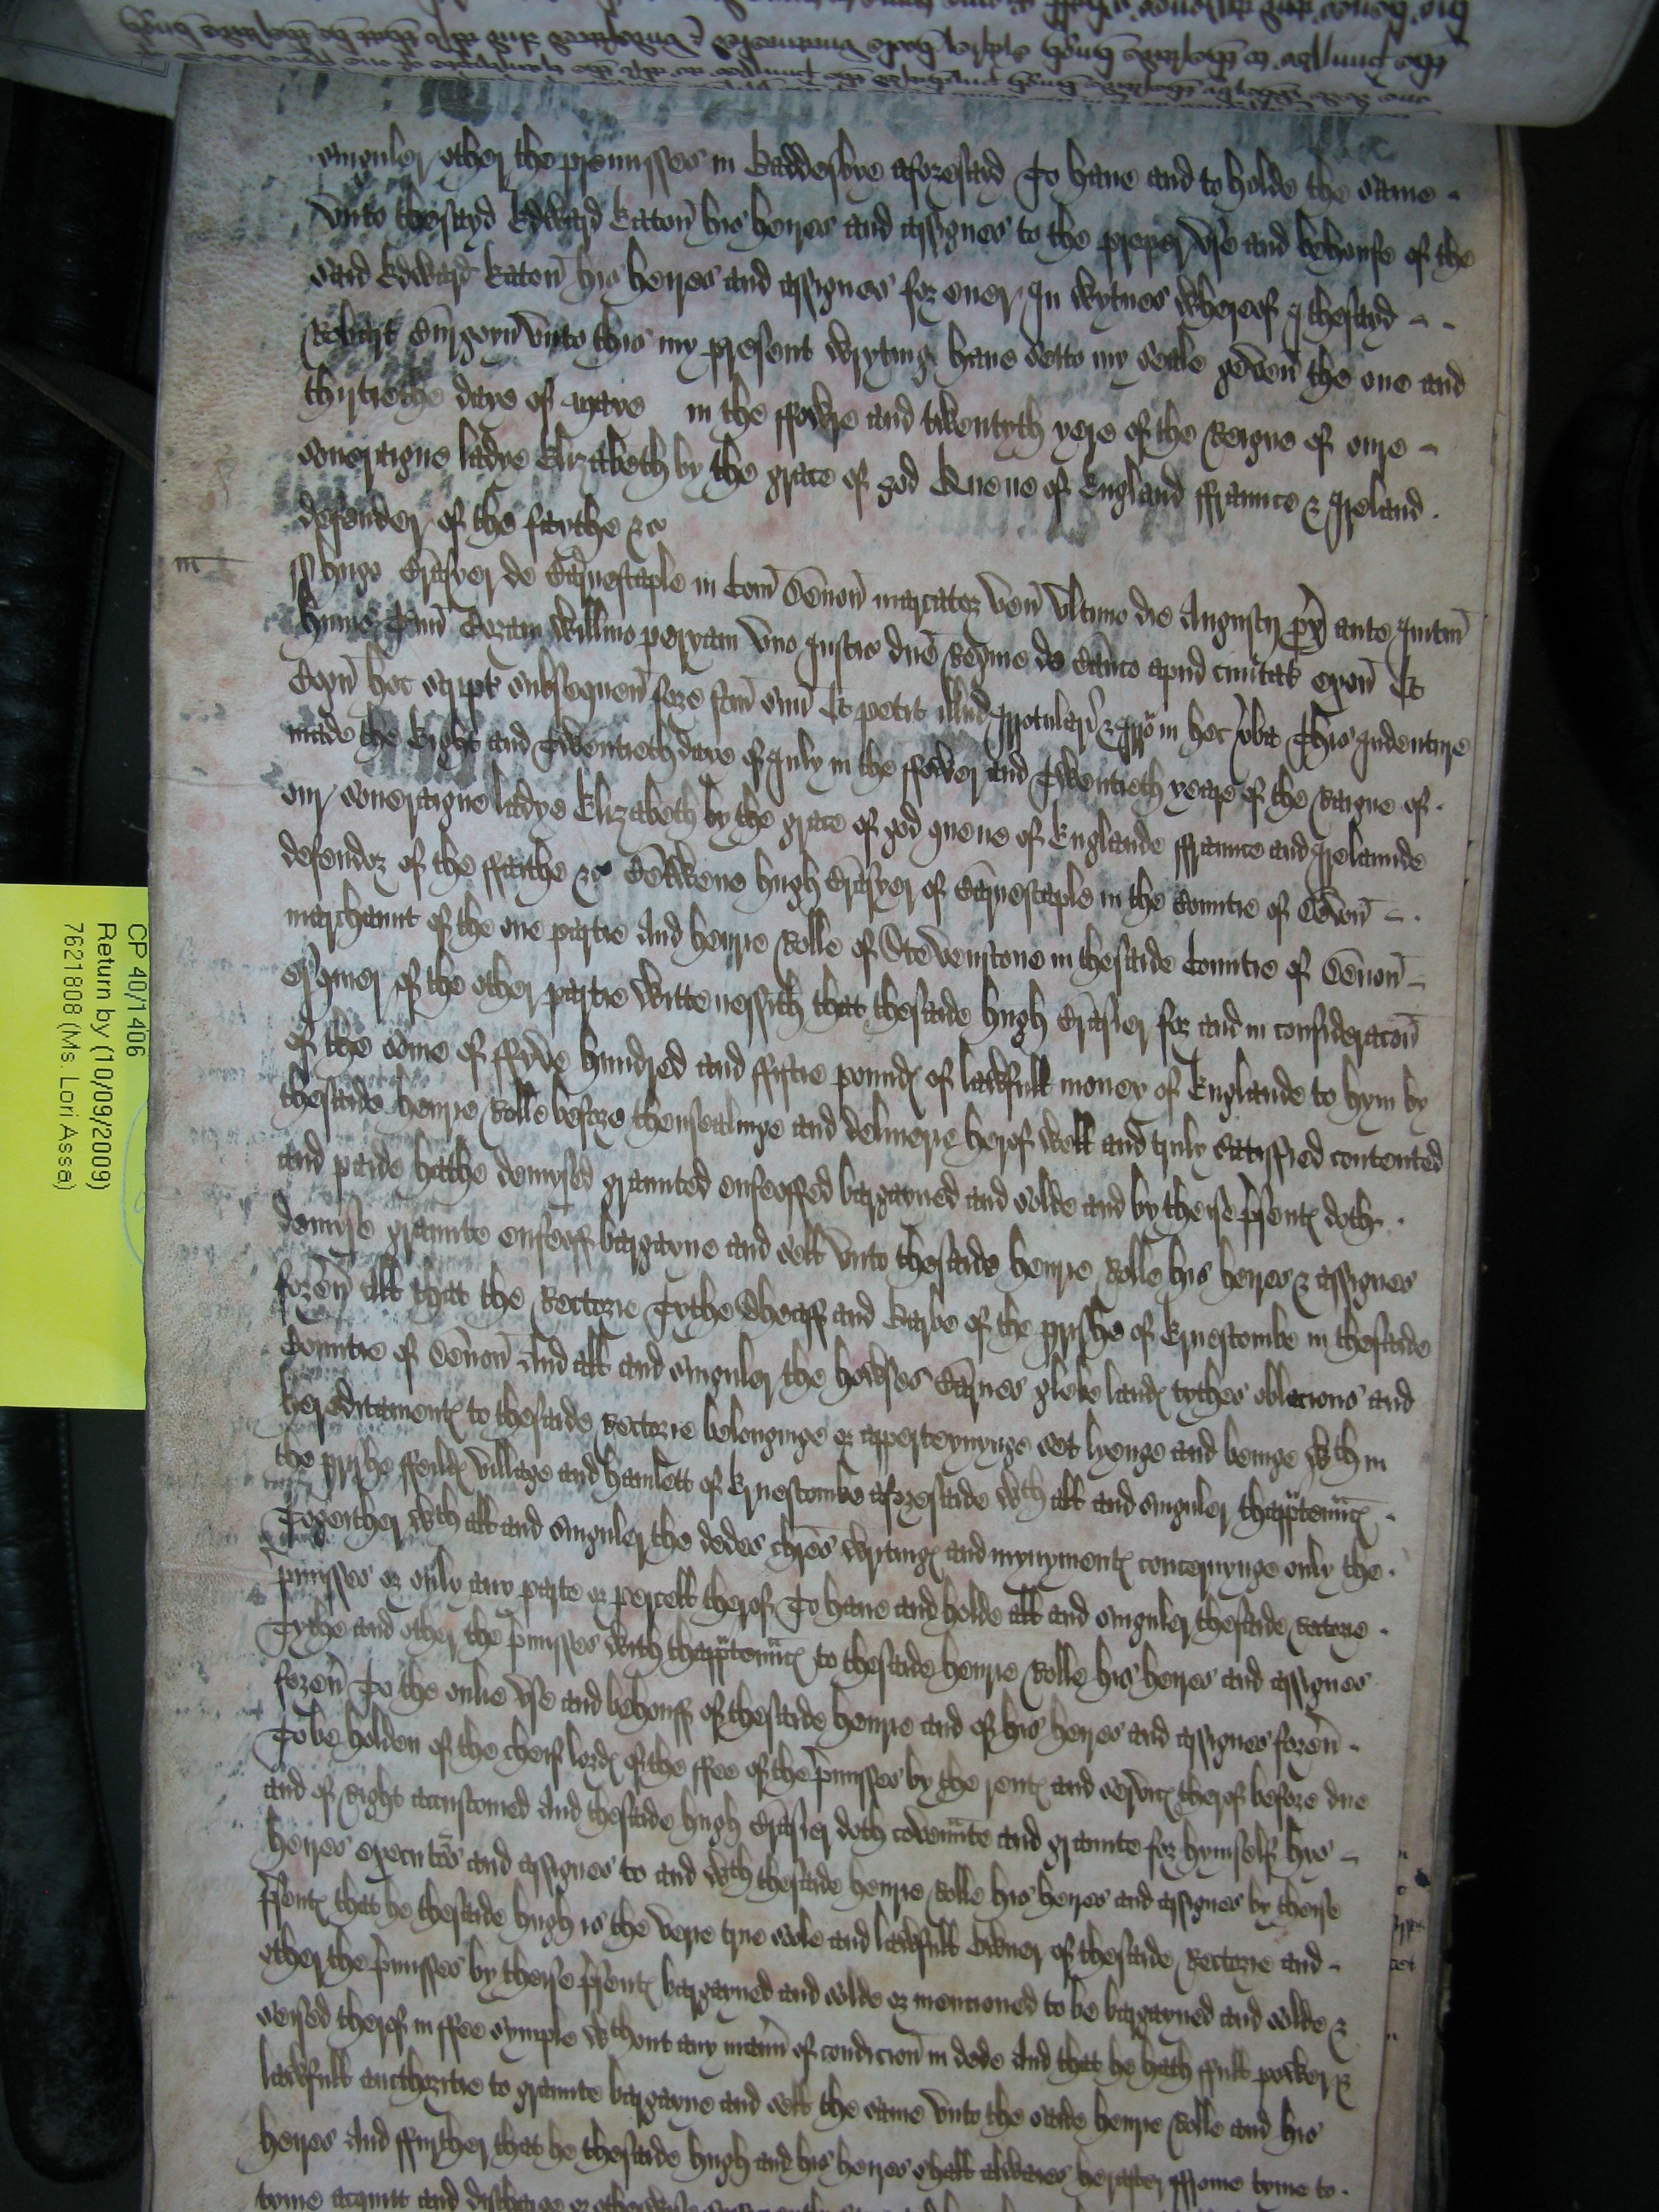 singuler other the premisses in Baddesbye aforesayd To have and to holde the same
unto thesayd Edward Eaton his heyres and assignes to the proper use and behoufe of the
said Edward Eaton his heyres and assignes for ever In wytnes whereof I thesayd
Robart unto this my present wryting have setto my seale geven the one and
thirtiethe daye of maye in the ffowre and twentyth yere of the Reigne of oure
soveraigne ladye Elizabeth by the grace of god Quene of England ffraunce & Ireland
defender of the faythe &c
m
Hugo Brasyer de Barnestaple in Com Devon marcator ven ultimo die Augusti ante
Coram Willmo peryam uno Justic dne Regine de Banco apud civitat Exon Et
hoc script subsequen fore fcm suum Et petit illud Irrotulari & in hec vba This Indenture
made the Eight and Twentieth daye of July in the ffower and Twentieth yeare of the Raigne of
our soveraigne ladye Elizabeth by the grace of god quene of Englande ffraunce and Irelannde
defendor of the ffaithe &c Betwene hugh Brasyer of Barnestaple in the Countie of Devon
marchaunt of the one partie And henrie Rolle of Stevenstone in thesaide Countie of Devon
esquier of the other partie Wittenessith that thesaide hugh Brasier for and in consideracon
of the some of ffyve hundred and ffiftie pounds of lawfull money of Englande to hym by
thesaide henrie Rolle before thensealinge and deliverie herof well and truly satisfied contented
and paide hathe demysed graunted enfeoffed bargayned and solde and by theise psents doth
demise graunte enfeoff bargayne and sell unto thesaide henrie Rolle his heyres & assignes
forev all that the Rectorie Tythe Sheaff and Garbe of the pyshe of Ernescombe in thesaide
Countie of Devon And all and singuler the howses Barnes glebe lands tythes oblacions and
hereditaments to thesaide Rectorie belonginge or apperteynynge set lyenge and beinge wth in
the pyshe ffeilds village and hamlett of Ernescombe aforesaide wth all and singuler thapptennces
Togeither wth all and singuler the dedes chres writings and mynyments concernynge only the
pmisses or only any parte or percell therof To have and holde all and singuler thesaide rectorie
Tythe and other the pmisses with thapptennces to thesaide henrie Rolle his heyres and assignes
forev To the onlie use and behouff of thesaide henrie and of his heyres and assignes forev
To be holden of the cheif lords of the ffee of the pmisses by the rents and services therof before due
and of Right accustomed And thesaide hugh Brasier doth covennte and graunte for hymself his
heyres executos and assignes to and wth thesaide henrie Rolle his heyres and assignes by theise
psents that he thesaide hugh is the verie true sole and lawfull Owner of thesaide Rectorie and
other the pmisses by theise psents bargayned and solde or mencioned to be bargayned and solde &
seised therof in ffee symple wthout any mann of condicion in dede And that he hath ffull power &
lawfull aucthoritie to graunte bargayne and sell the same unto the saide henrie Rolle and his
heyres And ffurther that he thesaide hugh and his heyres shall alwaies herafter ffrome tyme to
tyme acquitt and discharge or otherwise
CP 40/1406
Return by (10/09/2009)
7621808 (Ms. Lori Assa)